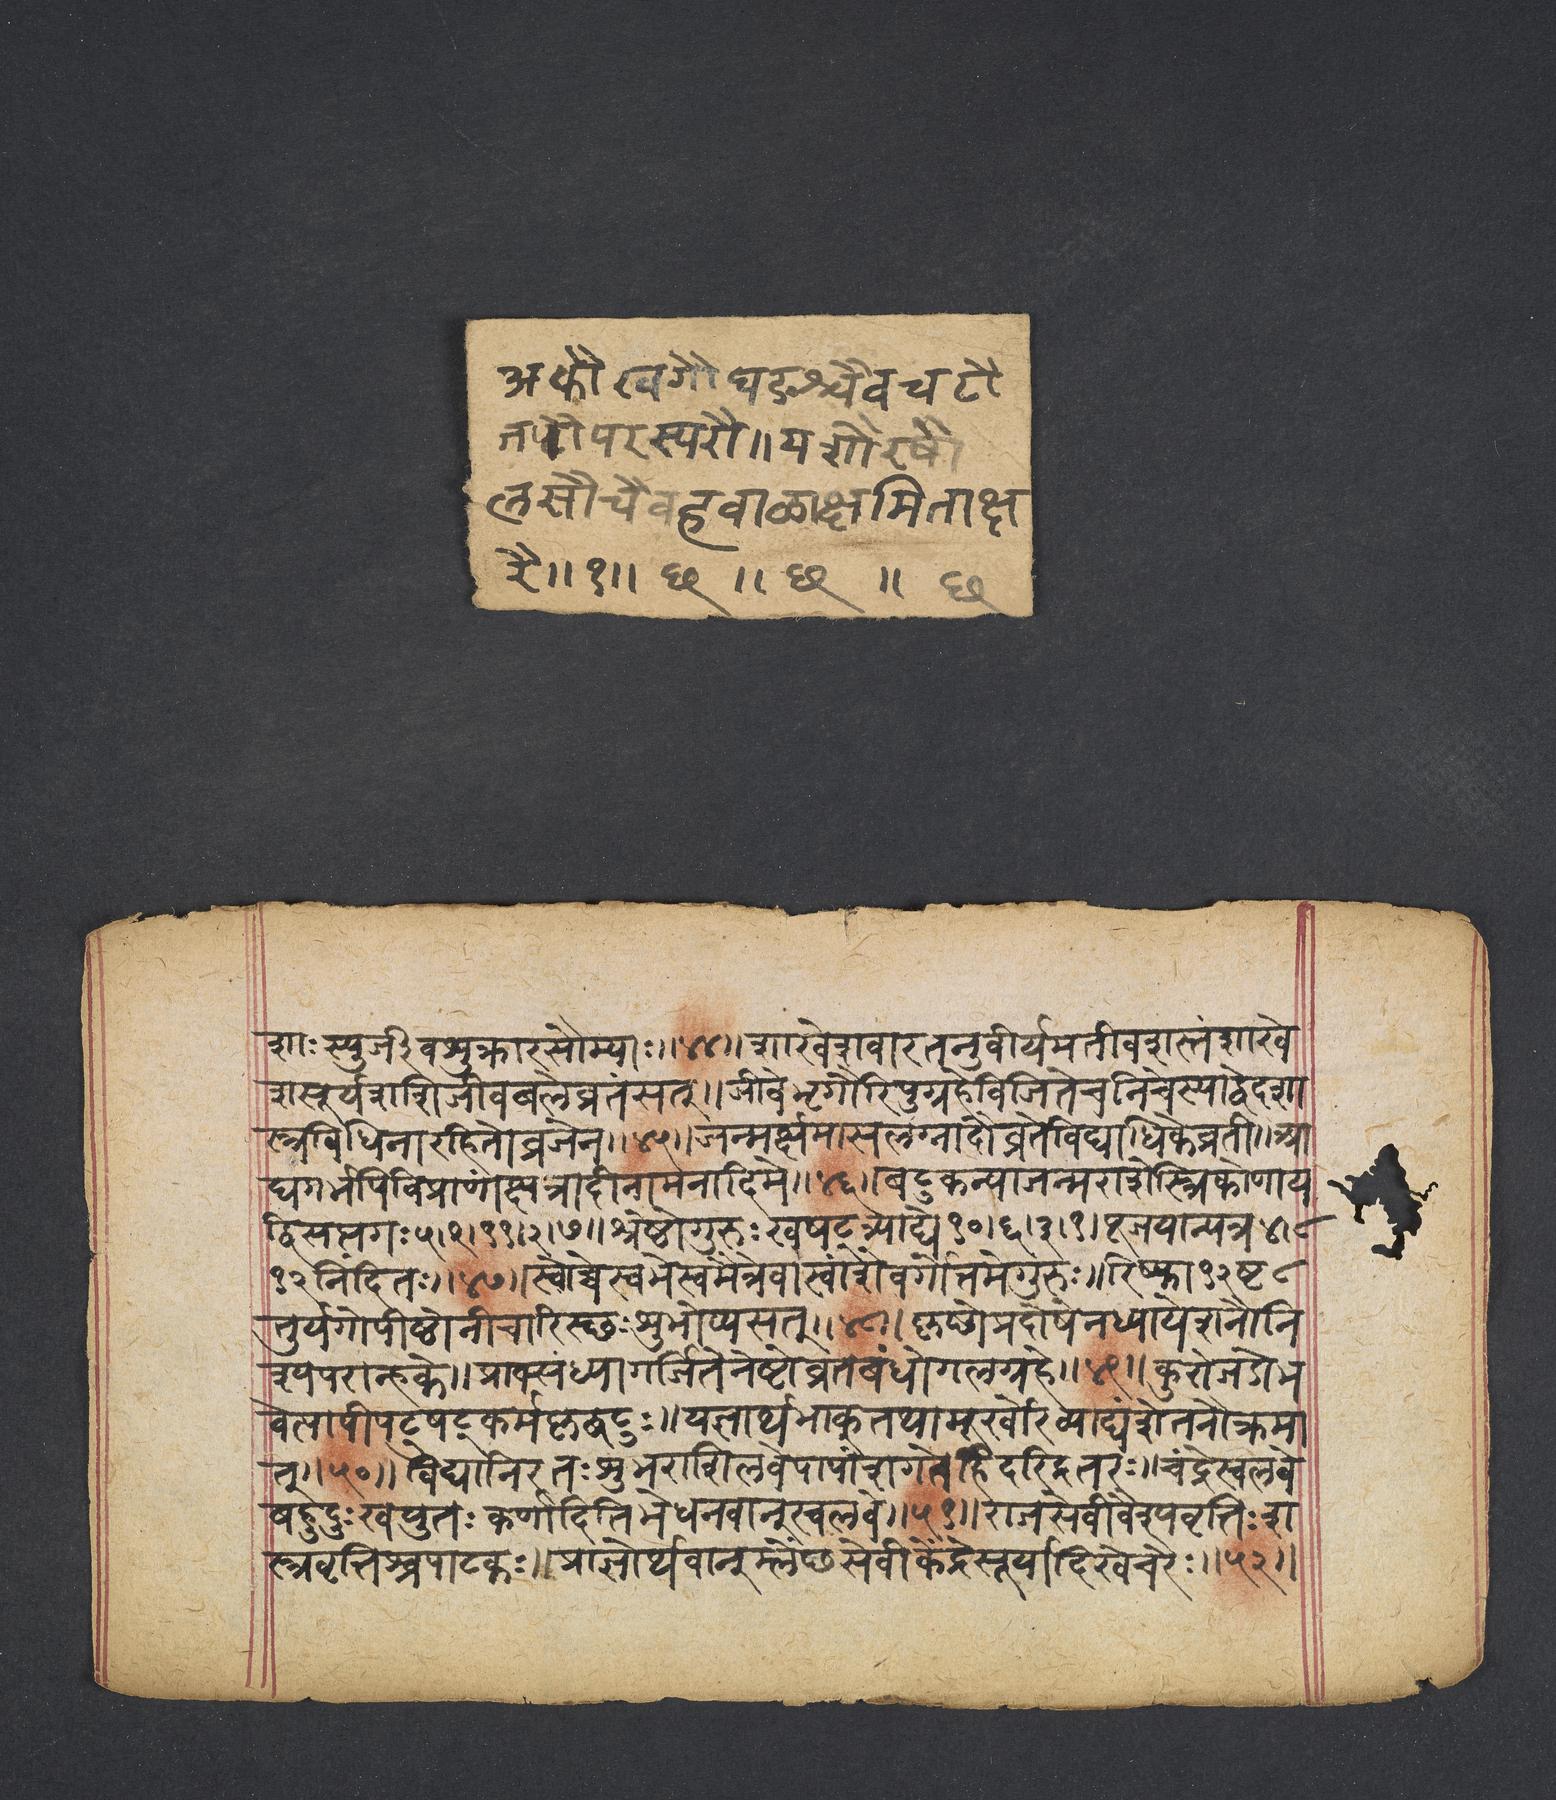 अकौ खगौ घङश्चैव चटौ
तपौ परस्परौ ॥ यशौ रषौ
लसौ चैव हवाळाक्ष मिताक्ष
रै ॥ १ ॥ छ ॥ छ ॥ छ
शाः स्युर्जीवशुक्रारसौम्याः ॥ ४४ ॥ शाखेशवारतनुवीर्यमतीवशस्तं शाखे
शसूर्यशशिजीवबले व्रतं सत् ॥ जीवे भृगौ रिपुगृहे विजिते च निचे स्याद्वेदशा
स्त्रविधिना रहितो व्रजेन ॥ ४५ ॥ जन्मर्क्षमासलग्नादौ व्रते विद्याधिको व्रती ॥ आ
द्यगर्भेपि विप्राणां क्षत्रादीनामनादिमे ॥ ४६ ॥ बटुकन्याजन्मराशेस्त्रिकोणाय
द्विसप्तगः ५।९।११।२।७॥ श्रेष्ठो गुरुः खषट्त्र्याद्ये १०।६।३।१। पूजयान्यत्र ४।८
१२ निंदितः ॥ ४७ ॥ स्वोच्चे स्वभे स्वमैत्रे वा स्वांशे वर्गोत्तमे गुरुः ॥ रिष्फा १२ ष्ट ८
तुर्यगोपीष्टो नीचारिस्छः शुभोप्यसत् ॥ ४८ ॥ कृष्णे प्रदोषेनध्याये शनौ नि
श्यपरान्हके ॥ प्राक्संध्यागर्जिते नेष्टो व्रतबंधो गलग्रहे ॥ ४९ ॥ क्रूरो जडो भ
वेत्पापी पटुः षट्कर्मकृद्बटुः ॥ यज्ञार्थभाक् तथा मूर्खो रव्याद्यंशे तनौ क्रमा
त् ॥ ५० ॥ विद्यानिरतः शुभराशिलवे पापांशगते हि दरिद्रतरः ॥ चंद्रे स्वलवे
बहुदुःखयुतः कर्णादितिभे धनवान् स्वलवे ॥ ५१ ॥ राजसेवी वैश्यवृत्तिः श
स्त्रवृत्तिश्च पाठकः ॥ प्राज्ञोर्थवान् म्लेंछसेवी केंद्रे सूर्यादिखेचरैः ॥ ५२ ॥